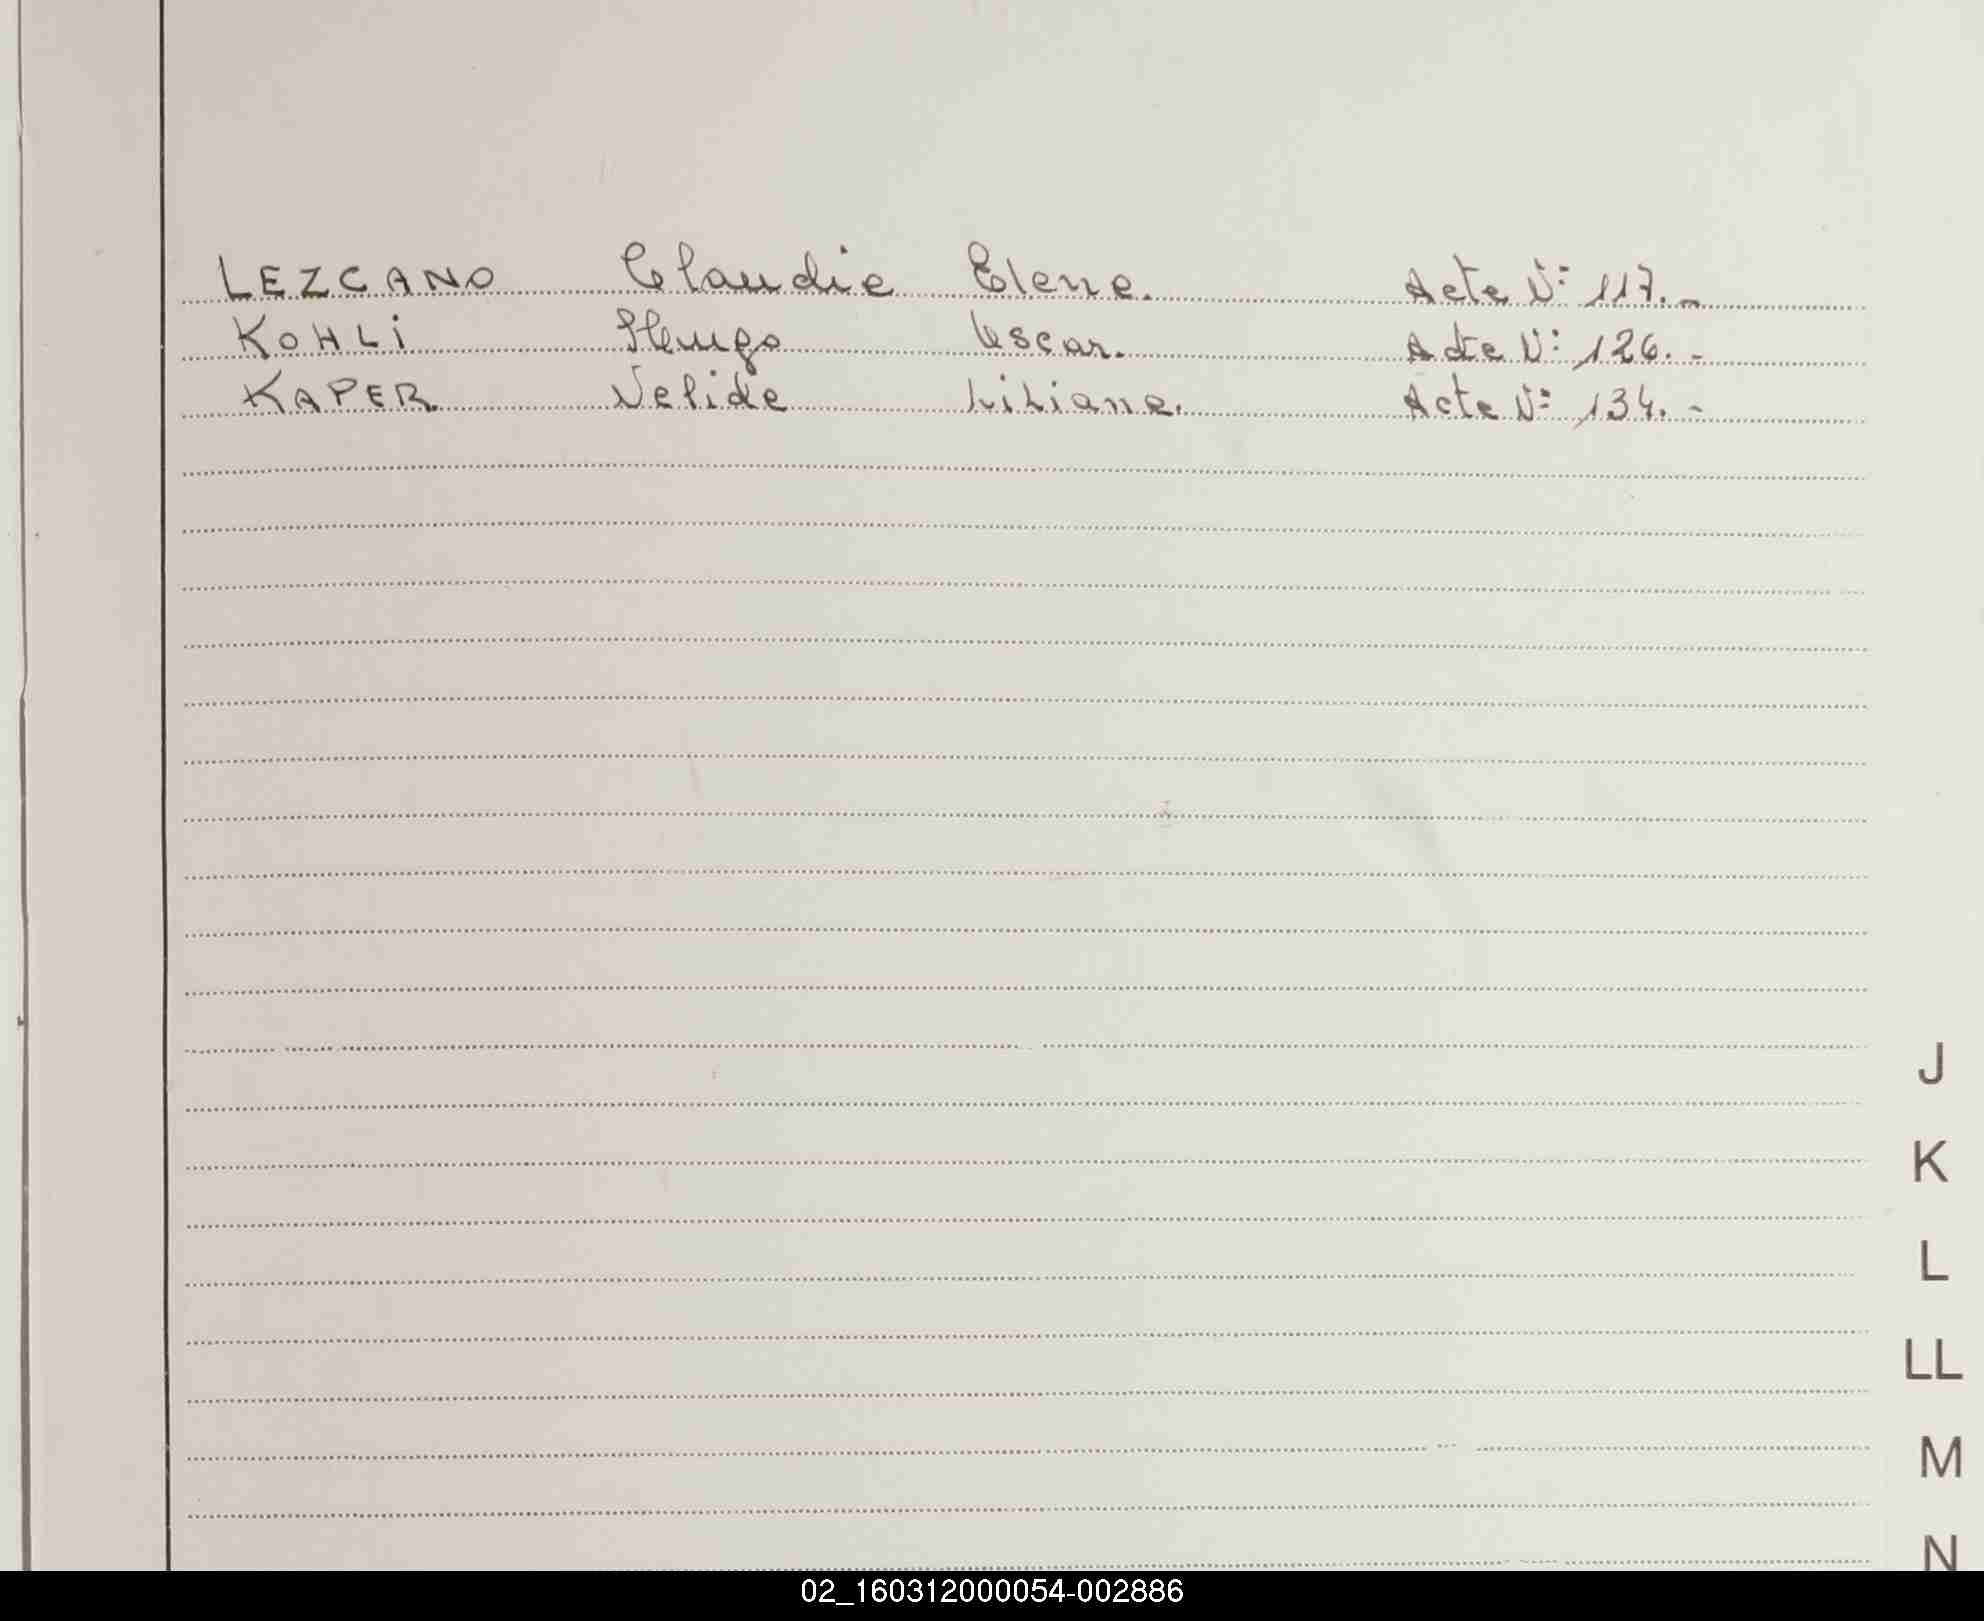 LEZCANO Claudia Elena. Acta Nº 117.-
KOHLI Hugo Oscar. Acta Nº 126.-
KAPER Nelida Liliana. Acta Nº 134.-
J
K
L
LL
M
N
02_160312000054-002886